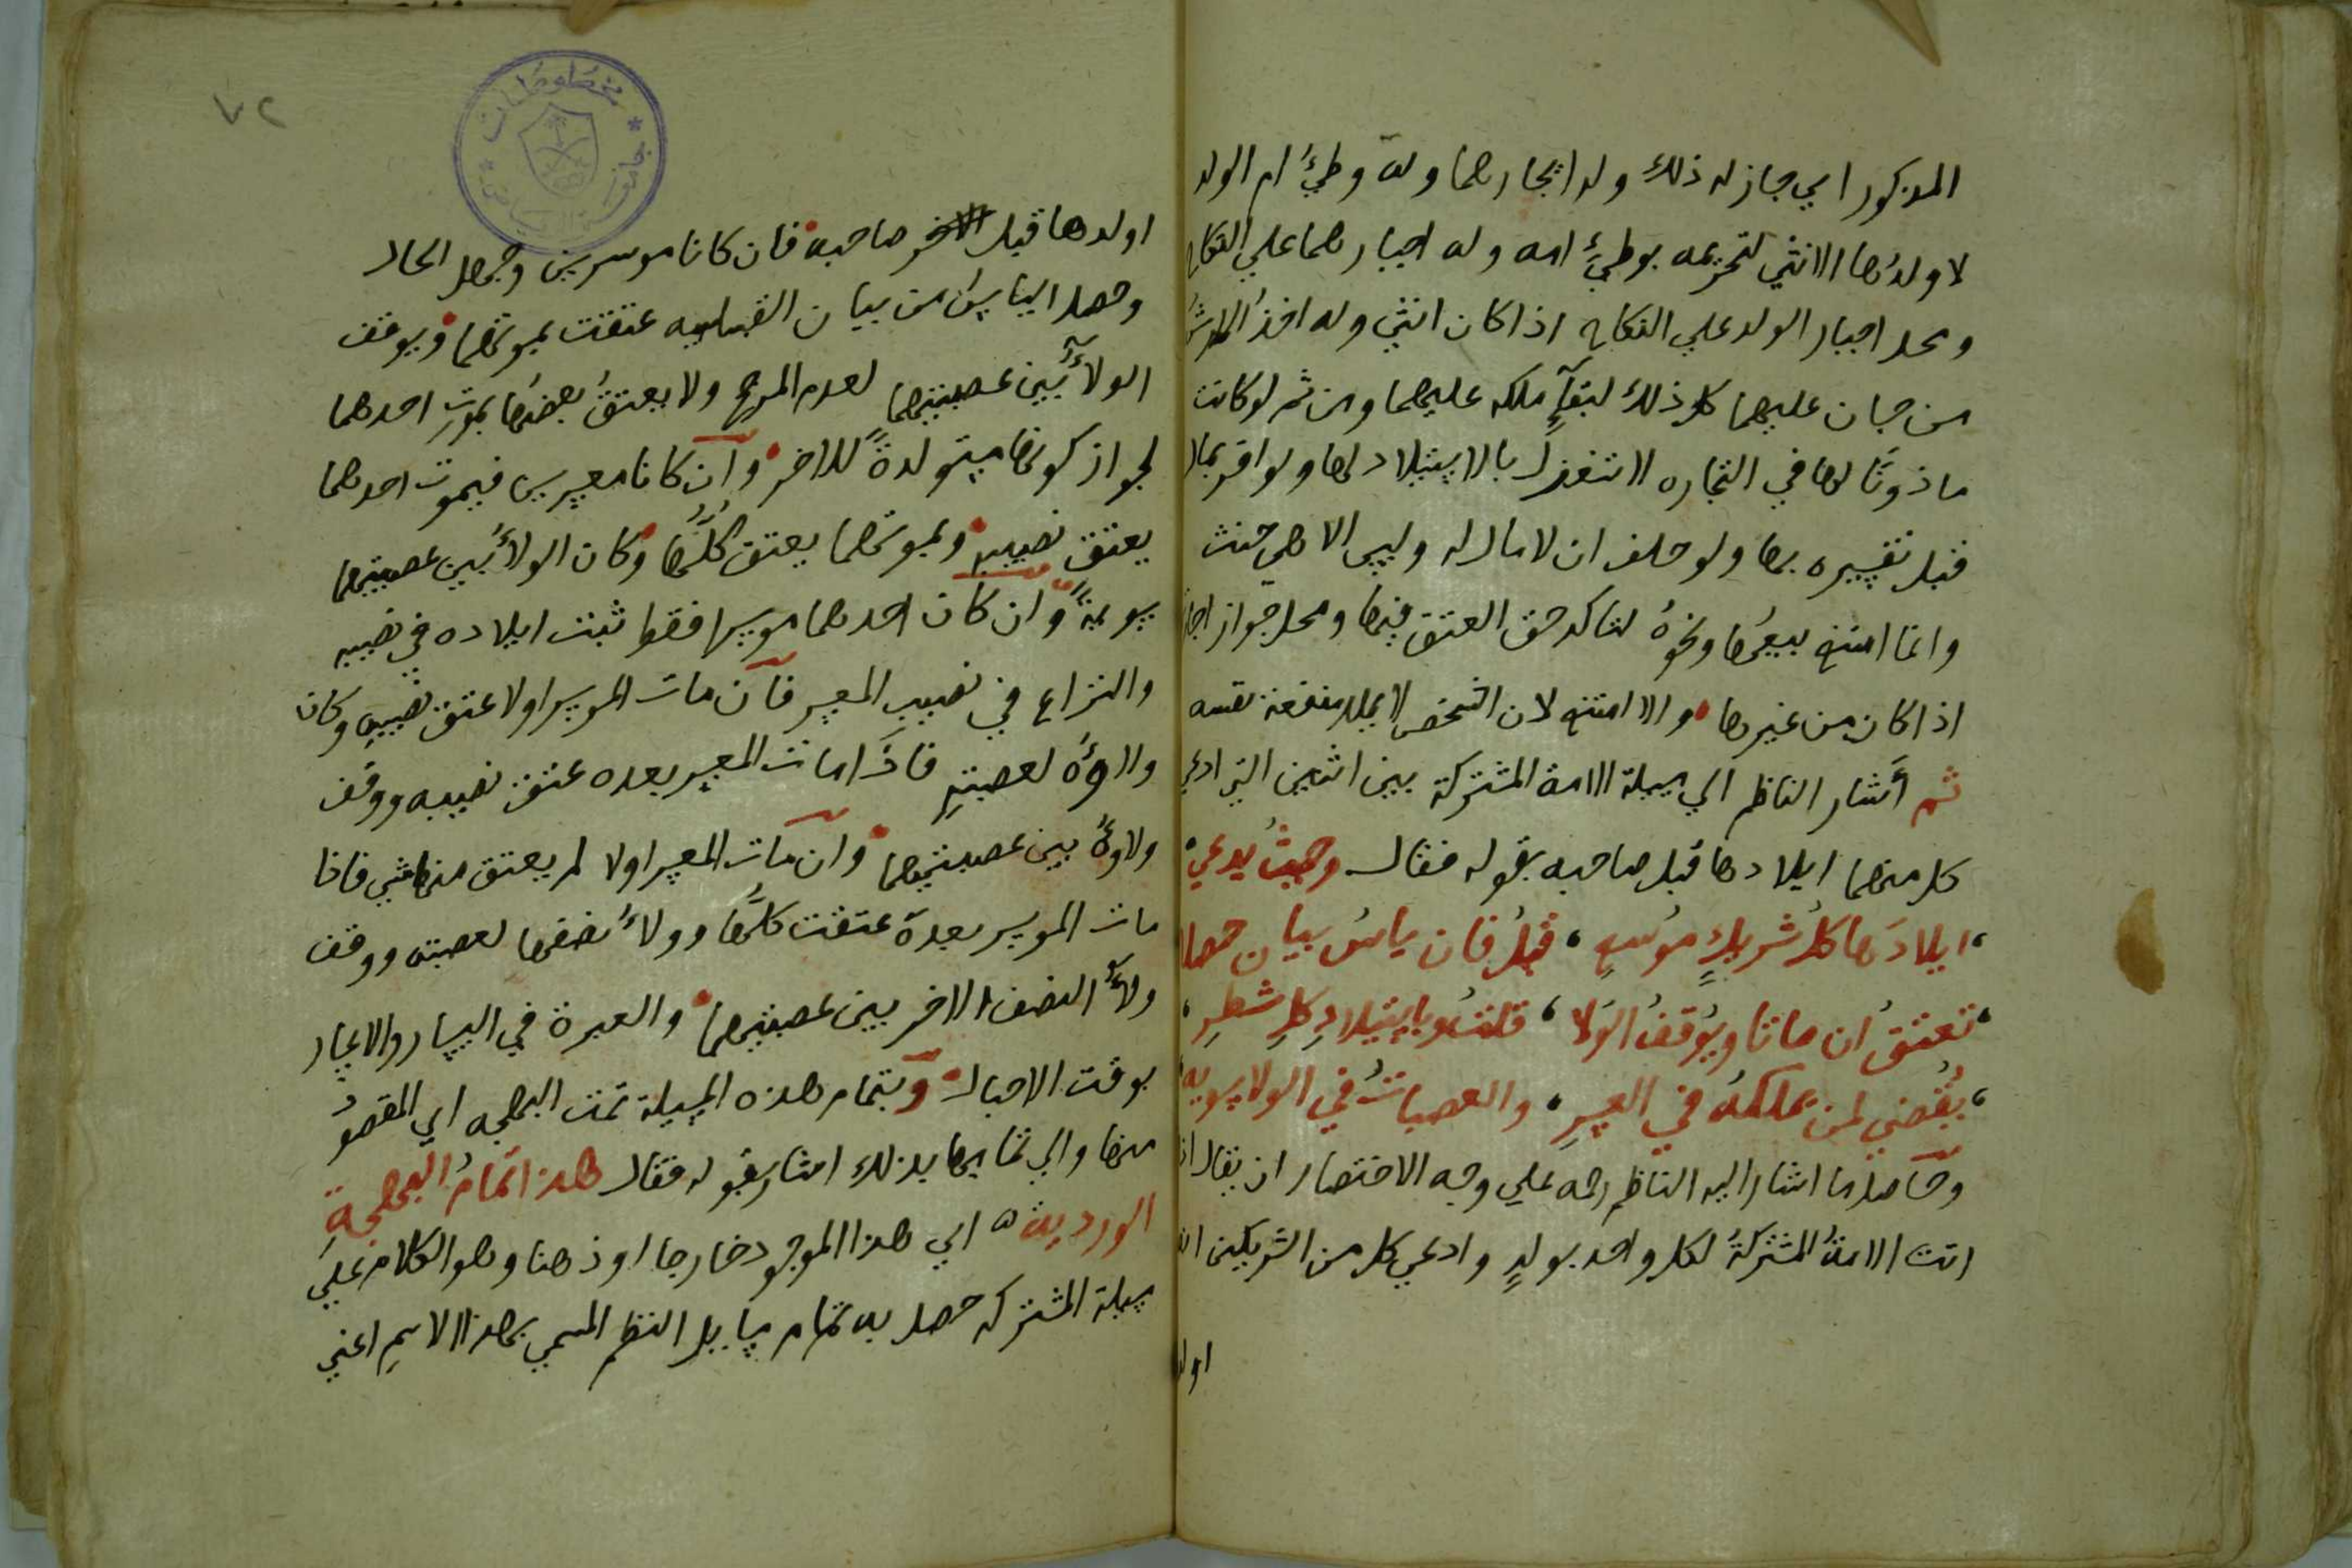 المذكور اي جاز له ذلك وله ايجارهما وله وطئ ام الولد
لا ولدها الانثي لتحريمه بوطئ امه وله اجبارهما علي النكاح
ومحل اجبار الولد علي النكاح اذا كان انثي وله اخذ الارش
من جان عليهما كل ذلك لبقآء ملكه عليهما ومن ثم لو كانت
ماذونًا لها في التجاره لا تنعزل بالاستيلاد لها ولو اقر بمال
قبل تفسيره بها ولو حلف ان لا مال له وليس الا هي حنث
وانما امتنع بيعها ونحوه لتاكد حق العتق فيها ومحل جواز
اذا كان من غيرها والا امتنع لان الشخص لا يملك منفعة نفسه
ثم أشار الناظم الي مسيلة الامة المشتركة بين اثنين التي ادعي
كل منهما ايلادها قبل صاحبه بقوله فقال وحيث يدعي
ايلادَها كل شريكٍ موسر قبل فان ياس بيان حصلا
تعتق ان ماتا ويوقف الولا قلت وبايتيلاد كل شطر
يقضي لمن يملكه في العسر والعصبات في الولا سويه
وحاصل ما اشار اليه الناظم رحمه علي وجه الاختصار ان يقال اذا
اتت الامة المشتركة لكل واحد بولدٍ وادعي كل من الشريكين انه
اولد
٧٢
مخطوطات
جامعة الرياض
اولدها قبل صاحبه فان كانا موسرين وجهل الحال
وحصل الياس من بيان القبليه عتقت بموتهما ويوقف
الولآء بين عصبتيهما لعدم المرجح ولا يعتق بعضها بموت احدهما
لجواز كونها مستولدةً للاخر وان كانا معسرين فبموت احدهما
يعتق نصيبه وبموتهما يعتق كلها وكان الولآء بين عصبتيهما
سويةً وان كان احدهما موسرا فقط ثبت ايلاده في نصيبه
والنزاع في نصيب المعسر فان مات الموسر اولا عتق نصيبه وكان
ولاؤه لعصبته فاذا مات المعسر بعده عتق نصيبه ووقف
ولاؤه بين عصبتيهما وان مات المعسر اولا لم يعتق منها شي فاذا
مات الموسر بعده عتقت كلها وولآء نصفها لعصبته ووقف
ولآء النصف الاخر بين عصبتيهما والعبرة في اليسار والاعسار
بوقت الاحبال وبتمام هذه المسيلة تمت البهجه اي المقصود
منها والي تمامها بذلك اشار بقوله فقال هذا تمام البهجة
الورديه اي هذا الموجود خارجا او ذهنا وهو الكلام علي
مسيلة المشتركه حصل به تمام مسايل النظم المسمي بهذا الاسم اعني